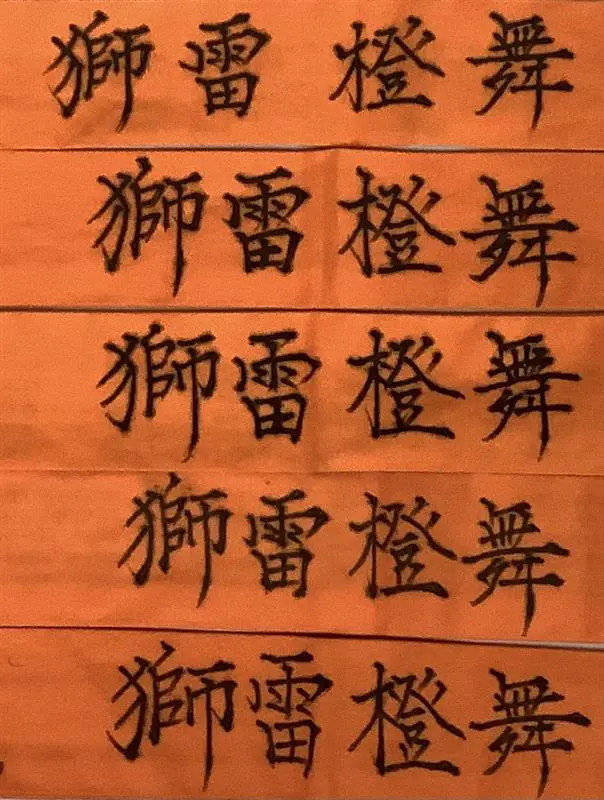 獅雷橙舞
獅雷橙舞
獅雷橙舞
獅雷橙舞
獅雷橙舞